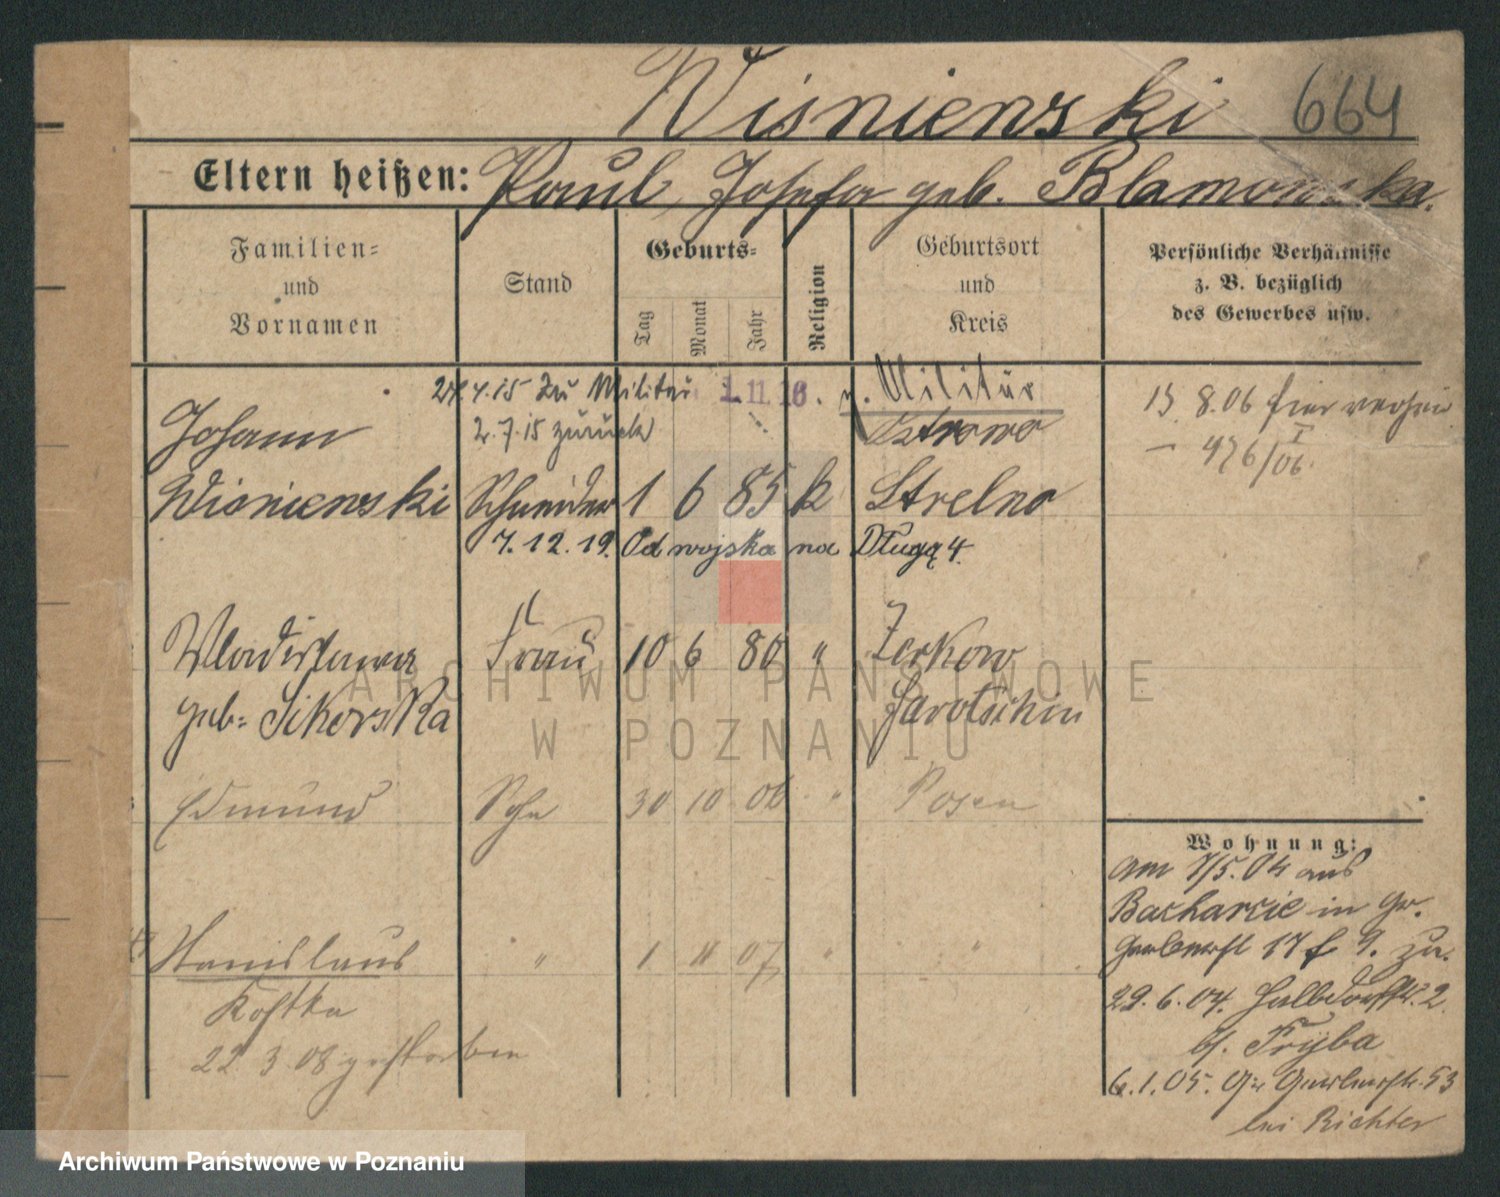 Wisniewski 664
Eltern heißen: Paul, Josefa geb. Blamowska.
Familien=
und
Vornamen
Stand
Geburts=
Tag
Monat
Jahr
Religion
Geburtsort
und
Kreis
Persönliche Verhältnisse
z. B. bezüglich
des Gewerbes usw.
24.4.15 zu Militär 1.11.16. v. Militär
2.7.15 zurück
Johann Ostrowo
Wisniewski Schneider 1 6 85 k Strelno
7.12.19. Od wojska na Długą 4.
13 8.06 hier
476/06.
Wladislawa Frau 10 6 80 " Zerkow
geb= Sikorska Jarotschin
Edmund Sohn 30 10 06 " Posen
Stanislaus " 1 11 07 " "
Kostka
22.3.08 gestorben
Wohnung:
am 7/5.04 aus
Bacharcie in Gr.
Gerberstr 17 zu.
29.6.04. Halbdorfstr. 2
b/. Fryba
6.1.05. Gr. Gerberstr. 53
bei Richter
ARCHIWUM PAŃSTWOWE
W POZNANIU
Archiwum Państwowe w Poznaniu